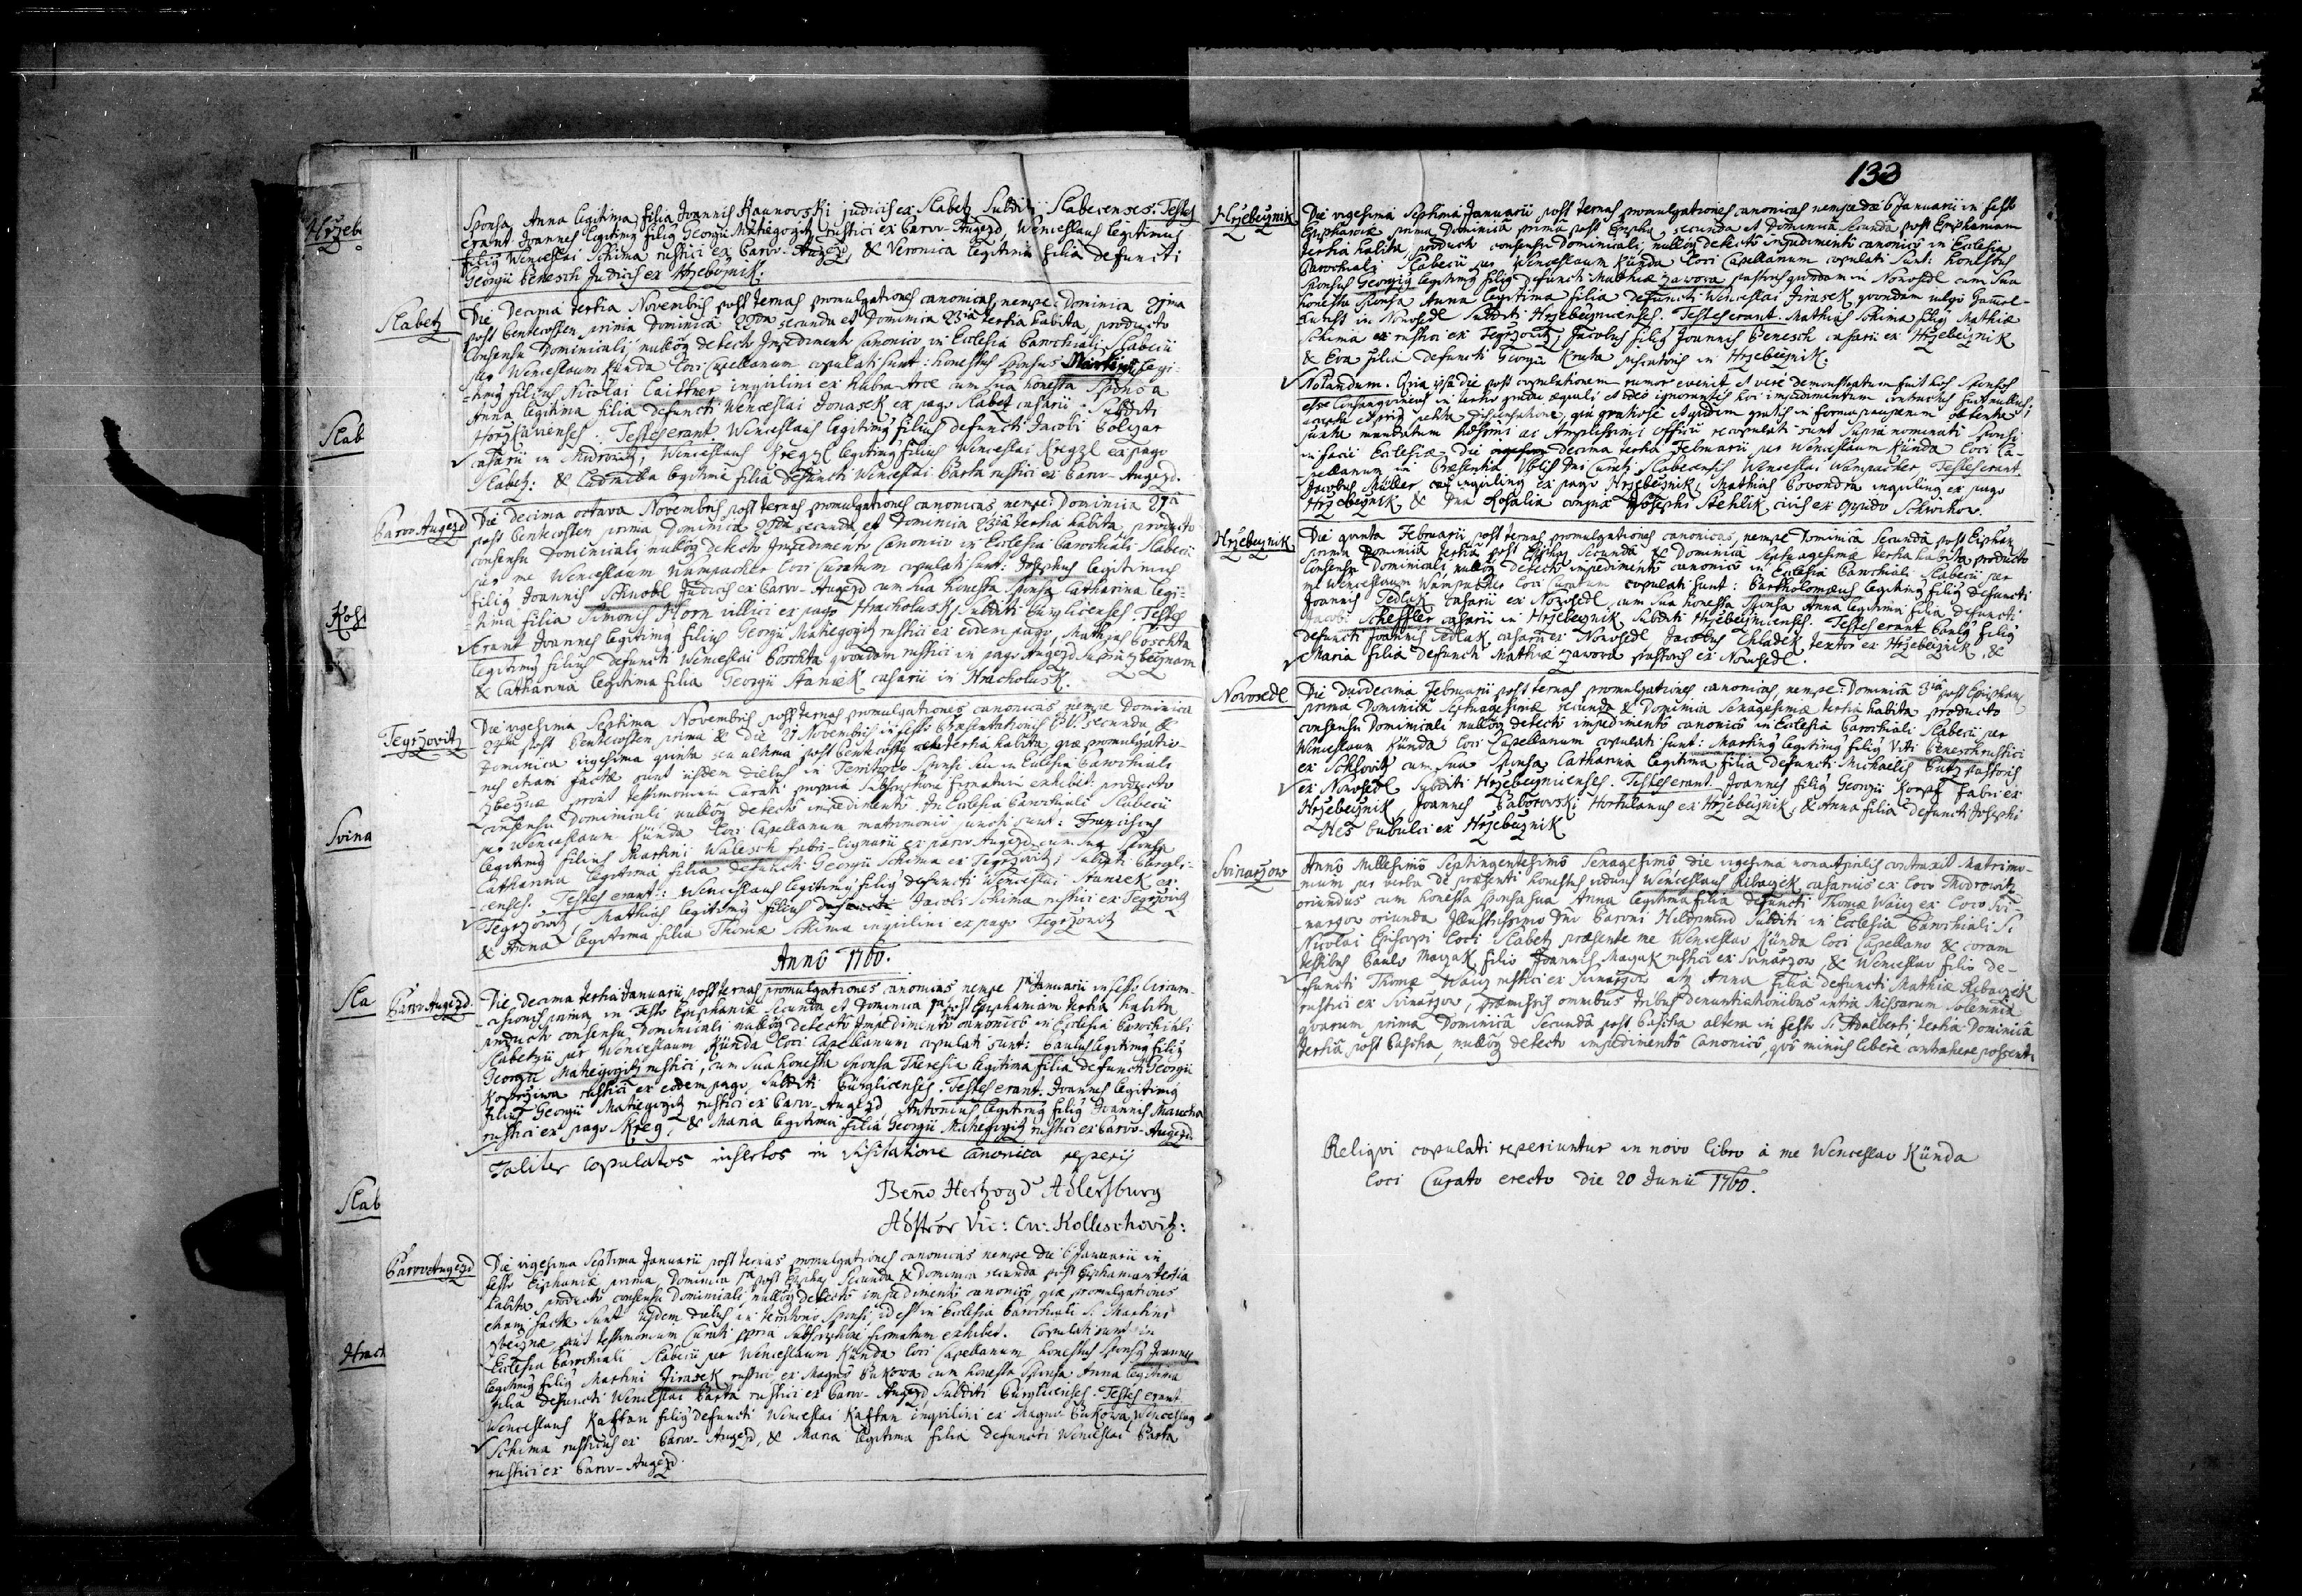 Hržeb
Sponsa Anna legitima filia Joannis Haunovski judicis ex Slabetz Subditi Slabecenses. Testes
erant Joannes legitimg filig Georgii Matiegogitz rustici ex Parvo-Augezd, Wenceslaus legitimus
filig Wenceslai Schima rustici ex Parvo-Augezd, & Veronica legitima filia defuncti
Georgii Benesch Judicis ex Hrzebeznik.
Slabetz
Die Decima tertia Novembris post ternas promulgationes canonicas, nempe: Dominica
post Pentecosten prima Dominica secunda et Dominica 23ia tertia habita, producto
Consensu Dominicali nullóq detecto Impedimento canonico in Ecclesia Parochiali Slabecii
per Wenceslaum Künda Loci Capellanum copulati sunt: honestus Sponsus Martinus legi-
timg filius Nicolai Laittner inquilini ex cum sua honesta Sponsa
Anna legitima filia defuncti Wenceslai Jonasek ex pago Slabetz casarii Subditi
Testes erant. Wenceslaus legitimg filius defuncti Jacobi
casarii in Wenceslaus Kregzl legitimg filius Wenceslai Kregzl ex pago
Slabetz: & Ludmila legitima filia defuncti Wenceslai Barta rustici ex Parvo-Augezd.
Slab
Parvo Augezd
Die decima octava Novembris post ternas promulgationes canonicas nempe: Dominica
post Pentecosten prima, Dominica secunda et Dominica 23ia tertia habita, producto
consensu Dominicali, nullóq detecto Impedimento Canonico in Ecclesia Parochiali Slabecii
per me Wenceslaum Wampachter loci Curatum copulati sunt: Josephus legitimus
filig Joannis Schnobl Judicis ex Parvo-Augezd cum sua honesta Sponsa Catharina legi-
tima filia Simonis Horn villici ex pago Hracholusk, Subditi Bürglicenses. Testes
Erant Joannes legitimg filius Georgii Matiegogitz rustici ex eodem pago, Mathias Poschta
legitimg filius defuncti Wenceslai Poschta quondam rustici in pago Augezd
& Catharina legitima filia Georgii Stanek casarii in Hracholusk.
Kost
Tegrzovitz
Die vigesima Septima Novembris post ternas promulgationes canonicas nempe Dominica
post Pentecosten prima & die 21 Novembris in festo Præsentationis secunda &
Dominica vigesima quinta seu ultima post Pentecosten tertia habita, quæ promulgatio-
nes etiam factæ sunt iisdem diebus in Territorio Sponsi seu in Ecclesia Parochiali
prout testimonium Curati propria subscriptione firmatum exhibet. producto
consensu Dominicali nullóq detecto impedimento. In Ecclesia Parochiali Slabecii
per Wenceslaum Künda Loci Capellanum matrimonio juncti sunt: Franciscus
legitimg filius Martini Walesch fabri-lignarii ex Parvo Augezd cum sua Sponsa
Catharina legitima filia defuncti Georgii Schima ex Tegrzovitz; Subditi Bürgli-
censes. Testes erant: Wenceslaus legitimg filig defuncti Wenceslai Stanek ex
Tegrzovitz, Mathias legitimg filius defuncti Jacobi Schimæ rustici ex Tegrzovitz
& Anna legitima filia Thomæ Schima inquilini ex pago Tegrzovitz
Svina
Annô 1760.
Sla
Parvo Augezd.
Die decima tertia Januarii post ternas promulgationes canonicas nempe Januarii in festo Circum-
cisionis prima, in Festo Epiphaniæ secunda et Dominica post Epiphaniam tertia habita
producto consensu Dominicali nullóq detecto Impedimentô canonicô in Ecclesia Parochiali
Slabetzii per Wenceslaum Künda Loci Capellanum copulati sunt: Paulus legitimg filig
Georgii Matiegogitz rustici, cum Sua honesta Sponsa Theresia legitima filia defuncti Georgii
Koprziwa rustici ex eodem pago, Subditi Bürglicenses. Testes erant. Joannes legitimg
filius Georgii Matiegogitz rustici ex Parvo-Augezd, Antonius legitimg filig Joannis Maucha
rustici ex pago Kreg, & Maria legitima filia Georgii Matiegogitz rustici ex Parvo-Augezd.
Taliter copulatos insertos in Visitatione Canonica reperij
Beno Hertzogd Adlersburg
Adstror Vic: Cir: Kolleschovit:
Slab
Parvo Augezd
Die vigesima Septima Januarii post ternas promulgationes canonicas nempe die 6 Januarii in
festo Epiphaniæ prima, Dominica post Epipha: Secunda & Dominica secunda post Epiphaniam tertia
habita, producto consensu Dominicali, nullóq detectô impedimentô canonicô, quæ promulgationes
etiam factæ sunt iisdem diebus in territorio Sponsi, id est in Ecclesia Parochiali S. Martini
testimonium Curati ppria subscriptione firmatum exhibet. Copulati sunt in
Ecclesia Parochiali Slabecii per Wenceslaum Künda Loci Capellanum honestus Sponsg Joannes
legitimg filig Martini Jirasek rustici ex Magno Bukowa cum honesta Sponsa Anna legitima
filia defuncti Wenceslai Barta rustici ex Parvo-Augezd, Subditi Bürglicenses. Testes erant
Wenceslaus Kafftan filig defuncti Wenceslai Kafftan inquilini ex Magno Bukowa, Wenceslaus
Schima rusticus ex Parvo-Augezd, & Maria legitima filia defuncti Wenceslai Barta
rustici ex Parvo-Augezd.
Hrach
133
Hrzebeznik
Die vigesima Septima Januarii post ternas promulgationes canonicas nempe die 6 Januarii in festo
Epiphaniæ prima Dominica prima post Epipha: secunda et Dominicâ secundâ post Epiphaniam
tertia habita, producto consensu Dominicali nullóq detectô impedimentô canonicô in Ecclesia
Parochiali Slabecii per Wenceslaum Künda Loci Capellanum copulati sunt: honestus
Sponsus Georgig legitimg filig defuncti Matthiæ Zavora pastoris quondam in Novosedl cum Sua
honesta Sponsa Anna legitima filia defuncti Wenceslai Jirasek quondam vulgo
in Novosedl Subditi Hrzebeznicenses. Testes erant. Mathias Schima filig Mathiæ
Schima rustici ex Tegrzovitz, Jacobus filig Joannis Benesch casarii ex Hrzebeznik
& Eva filia defuncti Georgii Kruta in Hrzebeznik.
Notandum. Quia ipsâ die post copulationem rumor evenit, et verè demonstratum fuit hos Sponsos
esse Consanguineos in tertio gradu æquali, et ideo ignorantis hoc impedimentum contractus fuit nullus;
petita dispensatione, gratis in forma pauperum obtenta
juxta mandatum ac Amplissimi Officii recopulati sunt Suprà nominati Sponsi
in facie Ecclesiæ. Die decima tertia Februarii per Wenceslaum Künda Loci Ca-
pellanum in Præsentia Dni Curati Slabecensis Wenceslai Wampacher, Testes erant
Jacobus Müller inquiling ex pago Hrzebeznik, Mathias Povondra inquiling ex pago
Hrzebeznik, & Dna Rosalia conjux Josephi Stehlik civis ex Oppido
Hrzebeznik
Die quinta Februarii post ternas promulgationes canonicas, nempe Dominica Secundâ post Epiphan:
prima Dominicâ tertiâ post Epipha: secunda & Dominicâ Septuagesimæ tertia habita, producto
Consensu Dominicali nullóq detectô impedimentô canonicô in Ecclesiâ Parochiali Slabecii per
me Wenceslaum Wampacher Loci Curatum copulati sunt: Bartholomæus legitimg filig defuncti
Joannis Sedlak casarii ex Novosedl, cum sua honesta Sponsa Anna legitima filia defuncti
Jacobi Scheffler casarii in Hrzebeznik Subditi Hrzebeznicenses. Testes erant Paulg filig
defuncti Joannis Sedlak casarii ex Novosedl Jacobus Chladek textor ex Hrzebeznik, &
Maria filia defuncti Mathiæ Zavora pastoris ex Novosedl.
Novosedl
Die duodecima Februarii post ternas promulgationes canonicas, nempe: Dominicâ 3iâ post Epiphan:
prima Dominicâ Septuagesimæ secunda & Dominica Sexagesimæ tertia habita producto
consensu Dominicali nullóq detectô impedimentô canonicô in Ecclesiâ Parochiali Slabecii per
Wenceslaum Künda Loci Capellanum copulati sunt: Marting legitimg filig Viti Benesch rustici
ex cum sua Sponsa Catharina legitima filia defuncti Michaelis Butz pastoris
ex Novosedl Subditi Hrzebeznicenses. Testes erant Joannes filig Georgii fabri ex
Hrzebeznik, Joannes Baborovski Hortulanus ex Hrzebeznik, & Anna filia defuncti Josephi
Hes bubulci ex Hrzebeznik
Svinarzow
Annô Millesimô Septingentesimô Sexagesimô die vigesima nona Aprilis contraxit Matrimo-
nium per verba de præsenti honestus viduus Wenceslaus Ribaczek casarius ex loco
oriundus cum honesta Sponsa sua Anna legitima filia defuncti Thomæ Waitz ex Loco Svi-
narzow oriunda Illustrissimo Dno Baroni Hildprand Subditi in Ecclesia Parochiali S.
Nicolai Episcopi Loci Slabetz præsente me Wenceslao Künda Loci Capellano & coram
testibus Paulo Mayak filio Joannis Mayak rustici ex Svinarzow, & Wenceslao filio de-
functi Thomæ Waitz rustici ex Svinarzow atq Anna filia defuncti Mathiæ Ribaczek
rustici ex Svinarzow, præmissis omnibus tribus denuntiationibus intra Missarum Solemnia
quarum prima Dominicâ Secundâ post Pascha altera in festo S. Adalberti, tertia Dominicâ
tertiâ post Pascha, nullóq detecto impedimentô Canonicô, quô minùs liberè contrahere possent.
Reliqvi copulati reperiuntur in novo libro à me Wenceslao Künda
Loci Curato erecto die 20 Junii 1760.